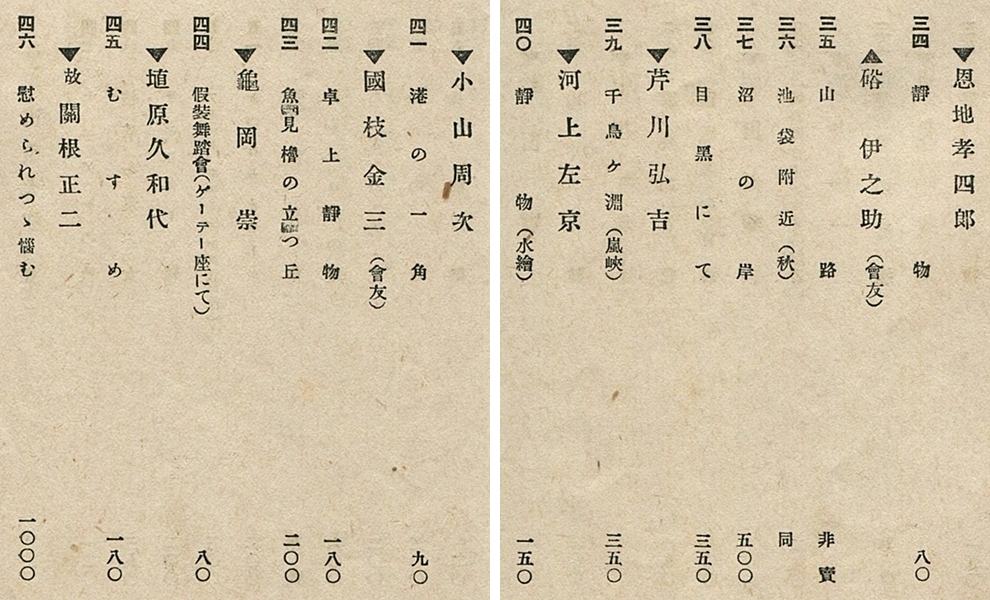 ▼恩地孝四郎
三四 靜物 八〇
▲硲伊之助（會友）
三五 山路 非賣
三六 池袋附近（秋） 同
三七 沼の岸 五〇〇
三八 目黑にて 三五〇
▼芹川弘吉
三九 千鳥ヶ淵（嵐峽） 三五〇
▼河上左京
四〇 靜物（水繪） 一五〇
▼小山周次
四一 港の一角 九〇
▼國枝金三（會友）
四二 卓上靜物 一八〇
四三 魚見櫓の立つ丘 二〇〇
▼龜岡崇
四四 假裝舞踏會（ゲーテー座にて） 八〇
▼埴原久和代
四五 むすめ 一八〇
▼故關根正二
四六 慰められつゝ惱む 一〇〇〇